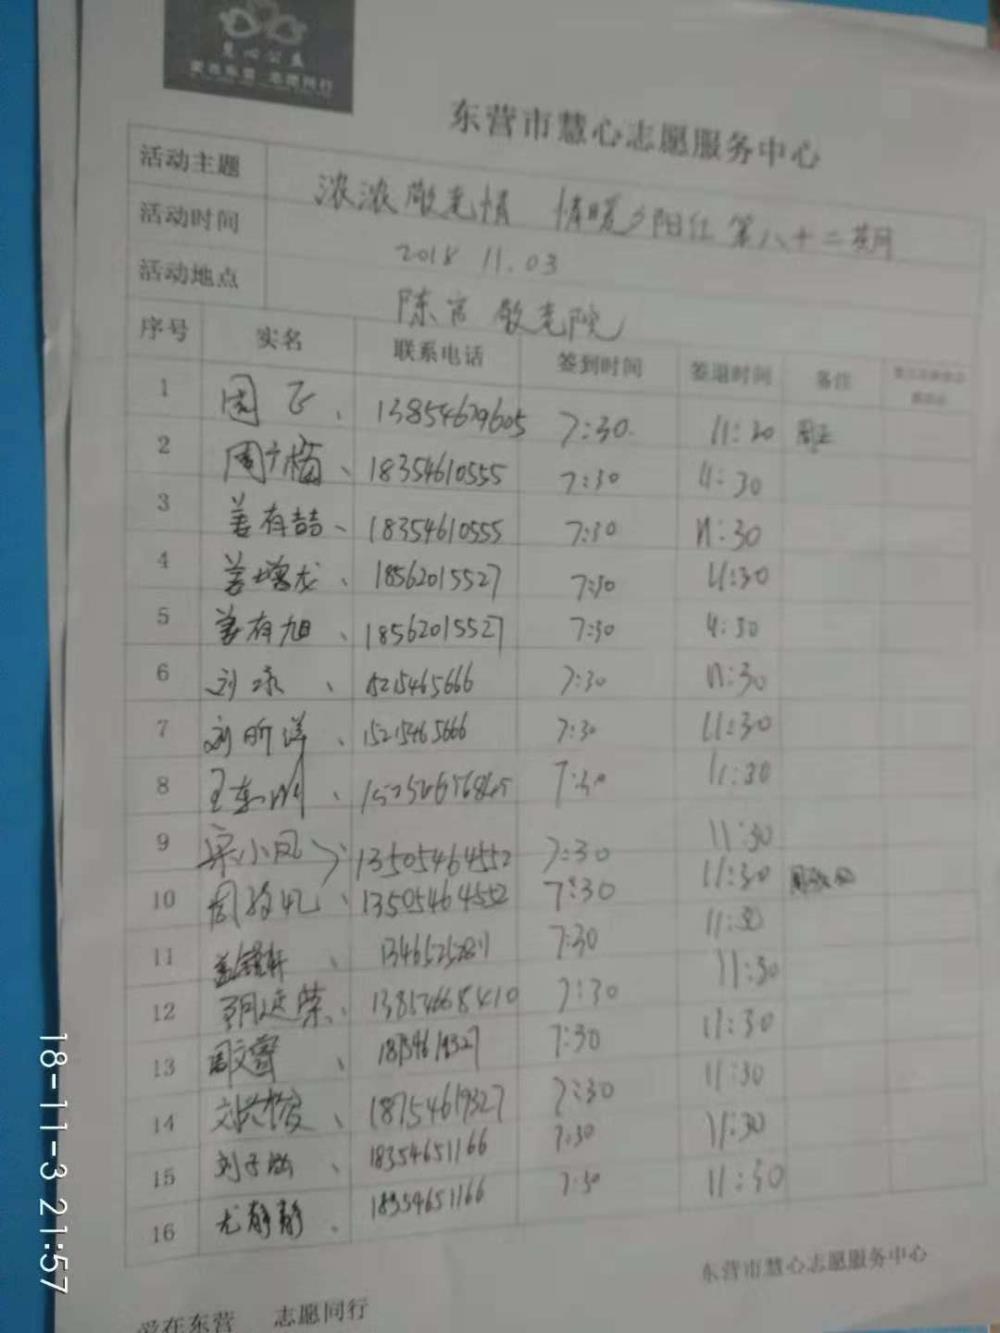 慧心公益
爱在东营 志愿同行
东营市慧心志愿服务中心
活动主题 浓浓敬老情 情暖夕阳红 第八十二期
活动时间 2018 11.03
活动地点 陈官敬老院
序号 实名 联系电话 签到时间 签退时间 备注
1 周飞、 13854629605 7:30. 11:30
2 周广梅、 18354610555 7:30 11:30
3 姜有喆、 18354610555 7:30 11:30
4 姜增龙、 18562015527 7:30 11:30
5 姜有旭、 18562015527 7:30 11:30
6 刘 、 15215465666 7:30 11:30
7 刘昕洋、 15215465666 7:30 11:30
8 王 、 7:30 11:30
9 宋小凤 13505464552 7:30 11:30
10 周 、 13505464552 7:30 11:30
11 轩、 7:30 11:30
12 荣、 7:30 11:30
13 周文 、 7:30 11:30
14 刘 、 18754619327 7:30 11:30
15 刘子 、 18354651166 7:30 11:30
16 尤静静、 18354651166 7:30 11:30
东营市慧心志愿服务中心
爱在东营 志愿同行
18-11-3 21:57